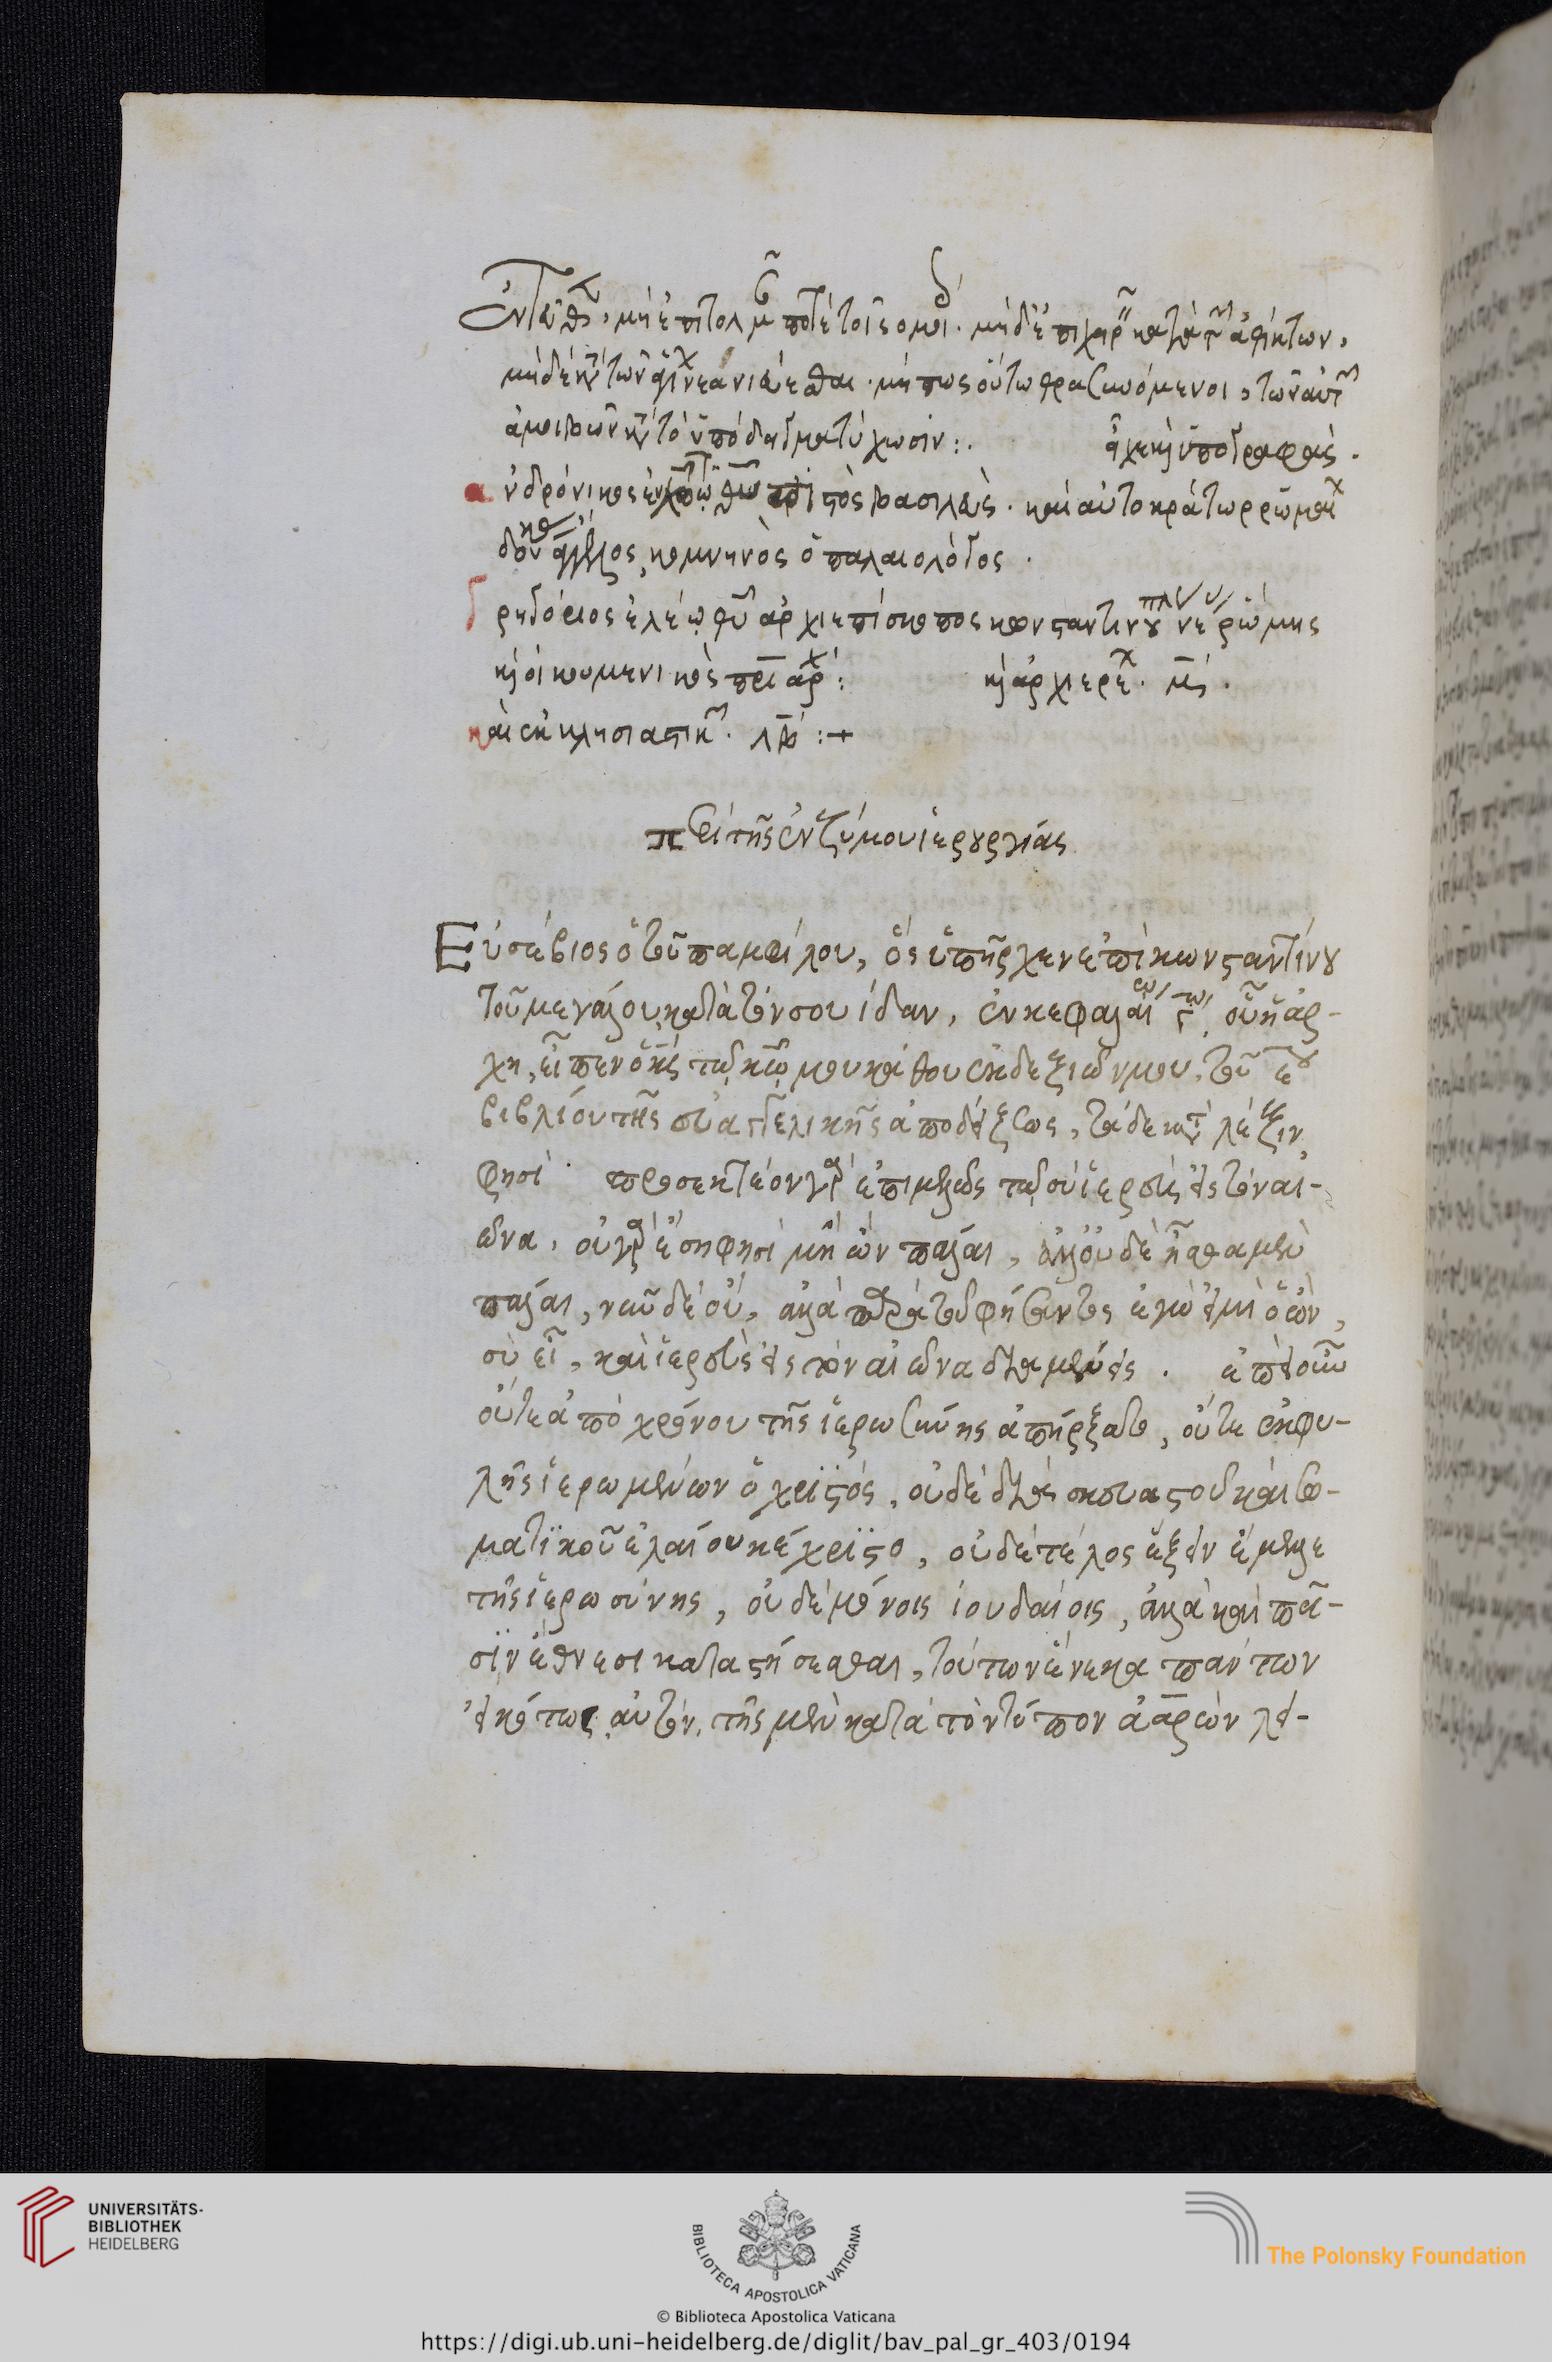 μηδὲ τῶν νεανιεύεσθαι. μή πως οὕτω θρασυνόμενοι, τῶν αὐτῶν
ἀμοιβῶν κατὰ τὸ ὑπόδειγμα τύχωσιν: εἶχε καὶ ὑπογραφὰς.
ἀνδρόνικος ἐν χῶ τῶ θῶ πιστὸς βασιλεὺς. καὶ αὐτοκράτωρ ῥωμαί
δούκας ἄγγελος, κομνηνὸς ὁ παλαιολόγος.
γρηγόριος ἐλέω θῦ ἀρχιεπίσκοπος κωνσταντινουπόλεως νέας ῥώμης
καὶ οἰκουμενικὸς πριάρχ: καὶ ἀρχιερεῖς. μ
καὶ ἐκκλησιαστικοὶ. λβ:+
περὶ τῆς ἐνζύμου ἱερουργίας
Εὐσέβιος ὁ τοῦ παμφίλου, ὃς ὑπῆρχεν ἐπὶ κωνσταντίνου
τοῦ μεγάλου, κατὰ τὸν σουίδαν, ἐν κεφαλαίω τρίτω, οὗ ἡ ἀρ-
χὴ, εἶπεν ὁ κς τῷ κῶ μου κάθου ἐκ δεξιῶν μου, τοῦ ε
βιβλίου τῆς εὐαγγελικῆς ἀποδείξεως, τάδε κατὰ λέξιν
φησί. προσεκτέον γὰρ ἐπιμελῶς τῷ σὺ ἱερεὺς εἰς τὸν αἰ-
ῶνα, οὐ γὰρ ἔση φησὶ μὴ ὢν πάλαι, ἀλλ' οὐδὲ ἦσθα μὲν
πάλαι, νῦν δὲ οὐ, ἀλλὰ παρὰ τοῦ φήσαντος ἐγώ εἰμι ὁ ὤν,
σὺ εἶ, καὶ ἱερεὺς εἰς τὸν αἰῶνα διαμένεις. ἐπεὶ οὖν
οὔτε ἀπὸ χρόνου τῆς ἱερωσύνης ἀπήρξατο, οὔτε ἐκ φυ-
λῆς ἱερωμένων ὁ χριστός, οὐδὲ διὰ σκευαστοῦ καὶ σω-
ματικοῦ ἐλαίου κέχριστο, οὐδὲ τέλος ἕξειν ἔμελλε
τῆς ἱερωσύνης, οὐδὲ μόνοις ἰουδαίοις, ἀλλὰ καὶ πᾶ-
σιν ἔθνεσι καταστήσεσθαι, τούτων ἕνεκα πάντων
εἰκότως αὐτὸν, τῆς μὲν κατὰ τὸν τύπον ἀαρὼν λει-
UNIVERSITÄTS-
BIBLIOTHEK
HEIDELBERG
BIBLIOTECA APOSTOLICA VATICANA
The Polonsky Foundation
© Biblioteca Apostolica Vaticana
https://digi.ub.uni-heidelberg.de/diglit/bav_pal_gr_403/0194